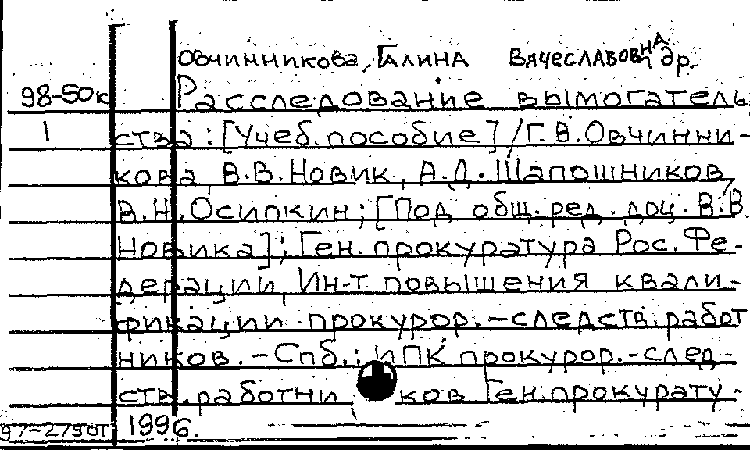 Овчинникова, Галина Вячеславовна др.
98-50к Расследование вымогатель
1 ства: [Учеб. пособие] / Г.В. Овчинни-
кова, В.В. Новик, А.Д. Шапошников,
В.Н. Осипкин; [Под общ. ред. доц. В.В.
Новика]; Ген. прокуратура Рос. Фе-
дерации, Ин-т повышения квали-
фикации прокурор.-следств. работ
ников. - Спб.: ИПК прокурор.-след-
ств. работников Ген. прокурату-
97-27901 1996.